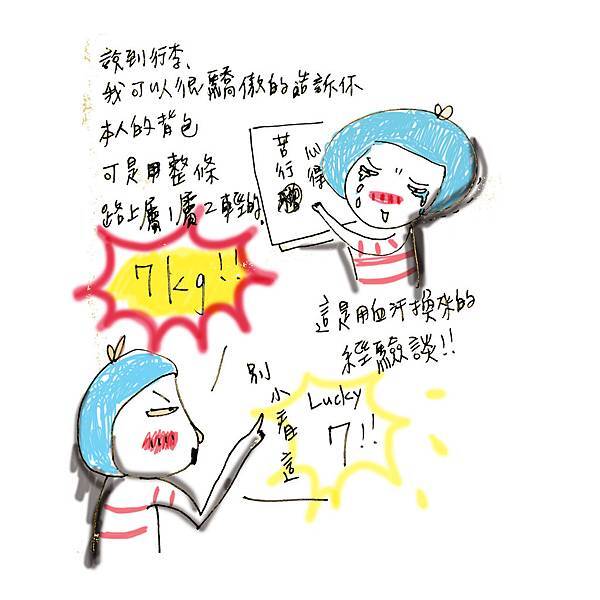 說到行李、
我可以很驕傲的告訴你
本人的背包
可是用整條
路上屬1屬2輕的
7kg!!
苦行
心得
這是用血汗換來的
經驗談!!
別小看這
Lucky
7!!